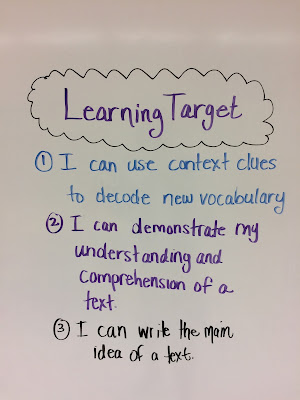 Learning Target
① I can use context clues
to decode new vocabulary
② I can demonstrate my
understanding and
comprehension of a
text.
③ I can write the main
idea of a text.